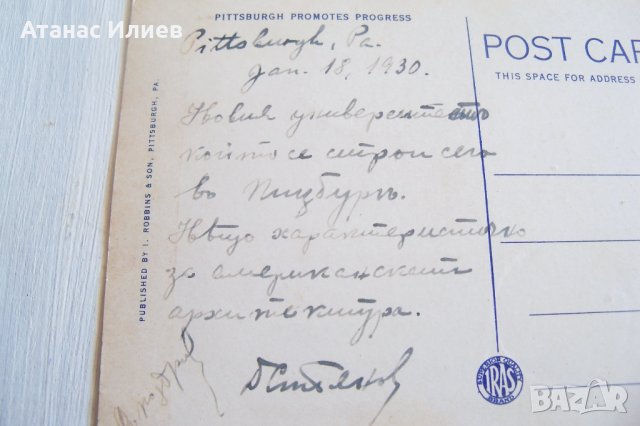 Атанас Илиев
PITTSBURGH PROMOTES PROGRESS
Pittsburgh, Pa.
Jan. 18, 1930.
POST CAR
THIS SPACE FOR ADDRESS
Новия университетъ
който се строи сега
въ Пицбургъ.
Нѣщо характеристично
за американската
архитектура.
PUBLISHED BY I. ROBBINS & SON, PITTSBURGH, PA.
SUPERIOR QUALITY
IRAS
BRAND
bazar.bg